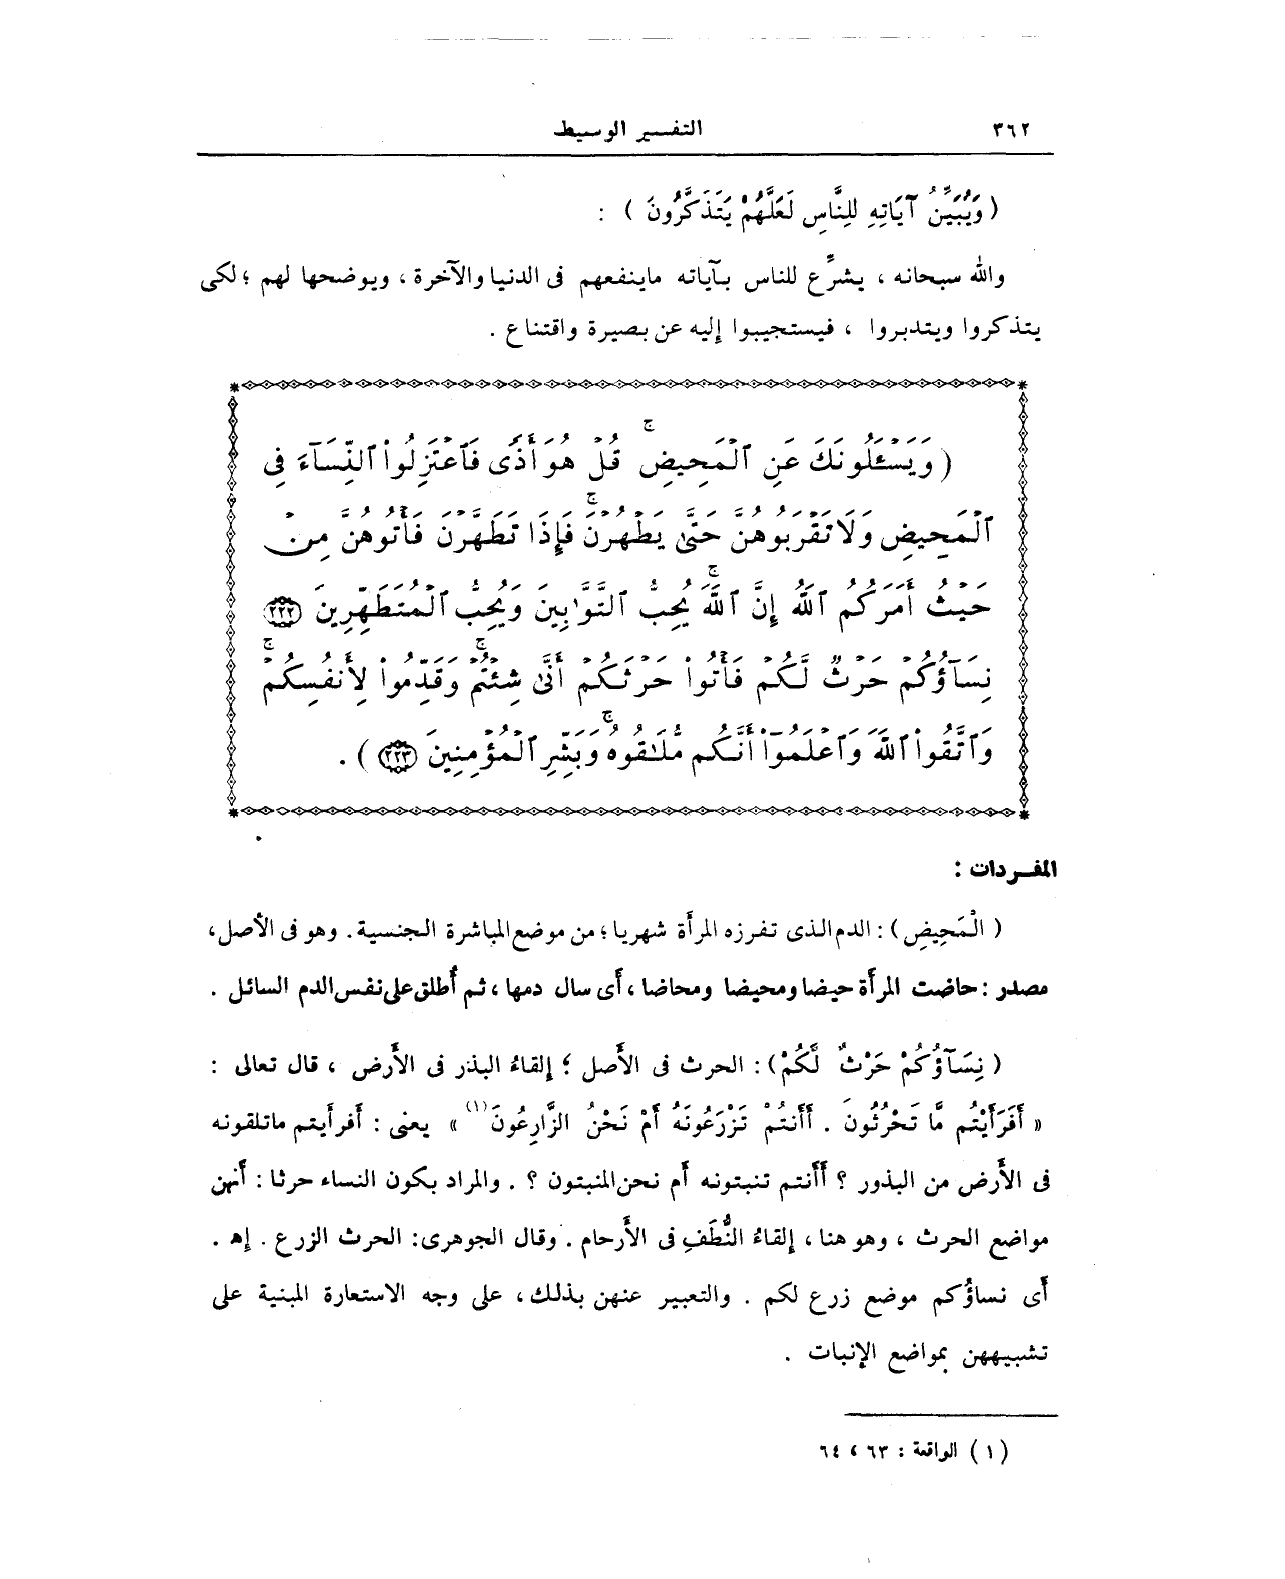 ٣٦٢ التفسير الوسيط
( وَيُبَيِّنُ آيَاتِهِ لِلنَّاسِ لَعَلَّهُمْ يَتَذَكَّرُونَ ) :
والله سبحانه ، يشرِّع للناس بآياته ماينفعهم فى الدنيا والآخرة ، ويوضحها لهم ؛ لكى
يتذكروا ويتدبروا ، فيستجيبوا إليه عن بصيرة واقتناع .
( وَيَسْـَٔلُونَكَ عَنِ ٱلْمَحِيضِ ۖ قُلْ هُوَ أَذًى فَٱعْتَزِلُوا۟ ٱلنِّسَآءَ فِى
ٱلْمَحِيضِ وَلَا تَقْرَبُوهُنَّ حَتَّىٰ يَطْهُرْنَ ۚ فَإِذَا تَطَهَّرْنَ فَأْتُوهُنَّ مِنْ
حَيْثُ أَمَرَكُمُ ٱللَّهُ ۚ إِنَّ ٱللَّهَ يُحِبُّ ٱلتَّوَّٰبِينَ وَيُحِبُّ ٱلْمُتَطَهِّرِينَ ٢٢٢
نِسَآؤُكُمْ حَرْثٌ لَّكُمْ فَأْتُوا۟ حَرْثَكُمْ أَنَّىٰ شِئْتُمْ ۚ وَقَدِّمُوا۟ لِأَنفُسِكُمْ ۚ
وَٱتَّقُوا۟ ٱللَّهَ وَٱعْلَمُوٓا۟ أَنَّكُم مُّلَٰقُوهُ ۗ وَبَشِّرِ ٱلْمُؤْمِنِينَ ٢٢٣ ) .
المفـردات :
( الْمَحِيضِ ) : الدم الذى تفرزه المرأة شهريا ؛ من موضع المباشرة الجنسية . وهو فى الأصل ،
مصدر : حاضت المرأة حيضا ومحيضا ومحاضا ، أى سال دمها ، ثم أُطلق على نفس الدم السائل .
( نِسَآؤُكُمْ حَرْثٌ لَّكُمْ ) : الحرث فى الأصل ؛ إلقاءُ البذر فى الأرض ، قال تعالى :
« أَفَرَأَيْتُم مَّا تَحْرُثُونَ . أَأَنتُمْ تَزْرَعُونَهُ أَمْ نَحْنُ الزَّارِعُونَ (١) » يعنى : أفرأيتم ماتلقونه
فى الأرض من البذور ؟ أأنتم تنبتونه أم نحن المنبتون ؟ . والمراد بكون النساء حرثا : أنهن
مواضع الحرث ، وهو هنا ، إلقاءُ النُّطَفِ فى الأرحام . وقال الجوهرى : الحرث الزرع . إه .
أى نساؤكم موضع زرع لكم . والتعبير عنهن بذلك ، على وجه الاستعارة المبنية على
تشبيههن بمواضع الإنبات .
( ١ ) الواقعة : ٦٣ ، ٦٤